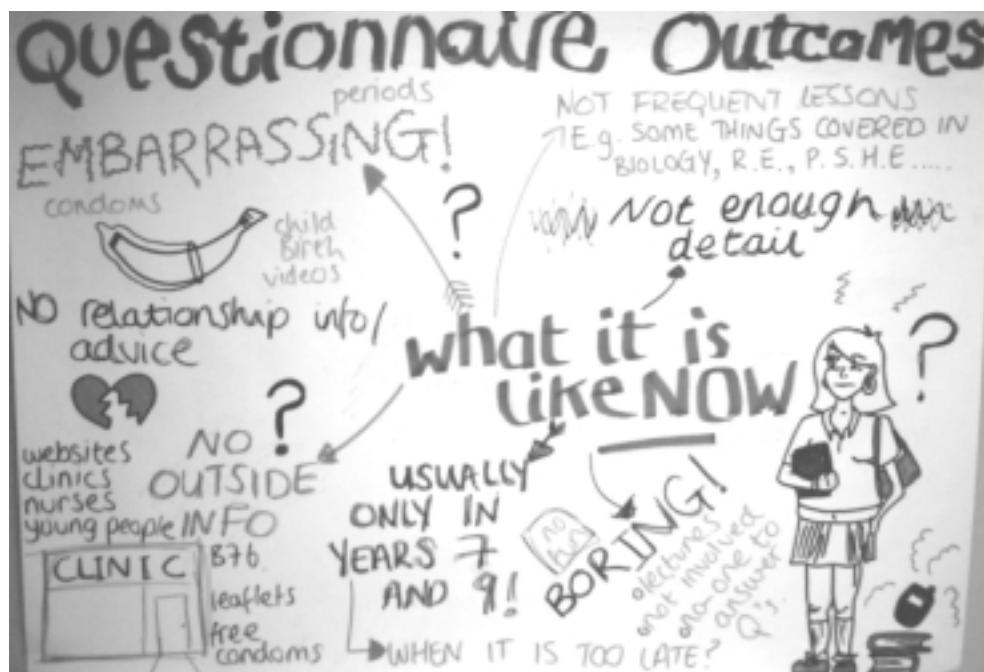 Questionnaire Outcomes
periods
EMBARRASSING!
condoms
child
Birth
videos
NOT FREQUENT LESSONS
E.g. SOME THINGS COVERED IN
BIOLOGY, R.E., P.S.H.E.....
Not enough
detail
NO relationship info/
advice
what it is
like NOW
?
?
?
websites
clinics
nurses
young people
NO
OUTSIDE
INFO
CLINIC
B76
leaflets
free
condoms
USUALLY
ONLY IN
YEARS 7
AND 9!
WHEN IT IS TOO LATE?
no
fun
BORING!
lectures
not involved
no-one to
answer
Q's.